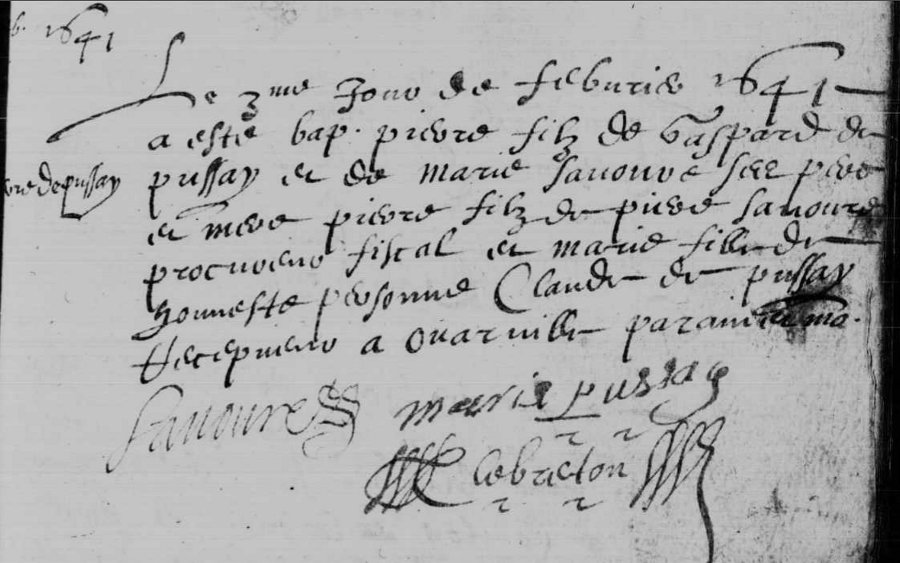 1641
Le 3me Jour de feburier 1641
a esté bap. pierre filz de Gaspard de
pussay et de marie sauoure ses pere
et mere pierre filz de pierre sauoure
procureur fiscal et marie fille de
honneste personne Claude de pussay
Recepueur a Ouarville parain et ma.
depussay
Sauoure
marie pussay
Lebreton